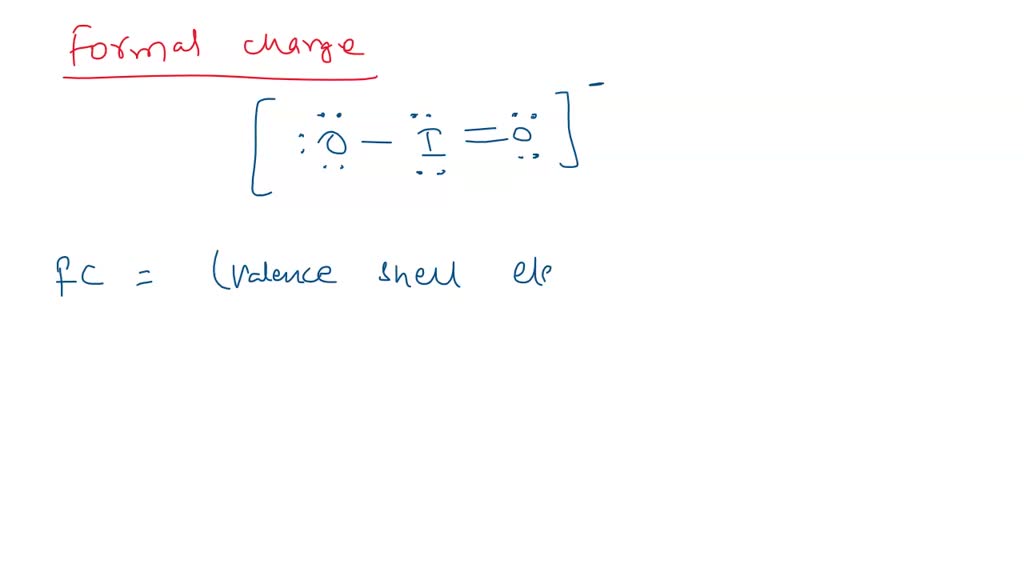 Formal charge
[:Ö - I = O]⁻
FC = (valence shell ele